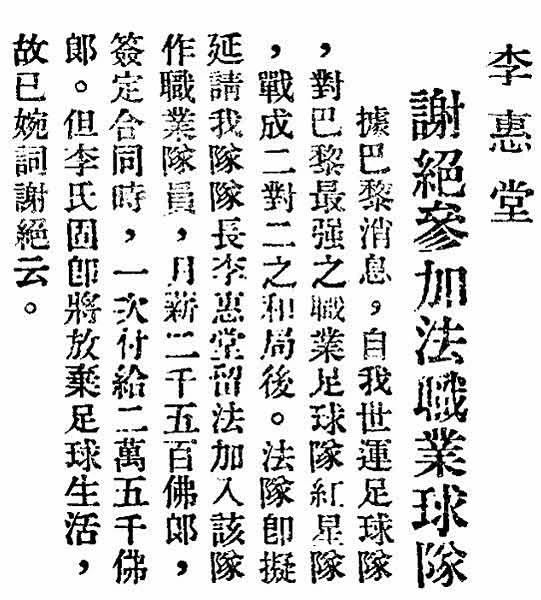 李惠堂
謝絕參加法職業球隊
據巴黎消息，自我世運足球隊
，對巴黎最强之職業足球隊紅星隊
，戰成二對二之和局後。法隊卽擬
延請我隊隊長李惠堂留法加入該隊
作職業隊員，月薪二千五百佛郎，
簽定合同時，一次付給二萬五千佛
郎。但李氏因卽將放棄足球生活，
故已婉詞謝絕云。